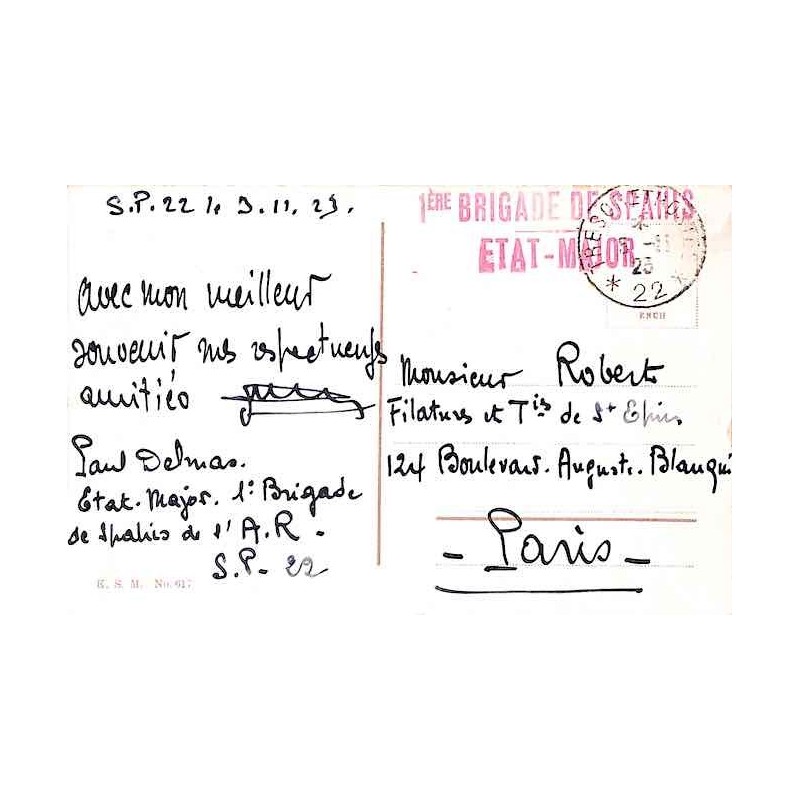 S.P. 22 le 3.11.25.
avec mon meilleur
souvenir mes respectueuses
amitiés
Paul Delmas.
Etat-Major. 1e Brigade
de Spahis de l'A.R-
S.P- 22
E. S. M. No. 617
1ÈRE BRIGADE DE SPAHIS
ETAT-MAJOR
* 22 *
Monsieur Robert
Filatures et Tis de St
124 Boulevard. Auguste. Blanqui
- Paris -